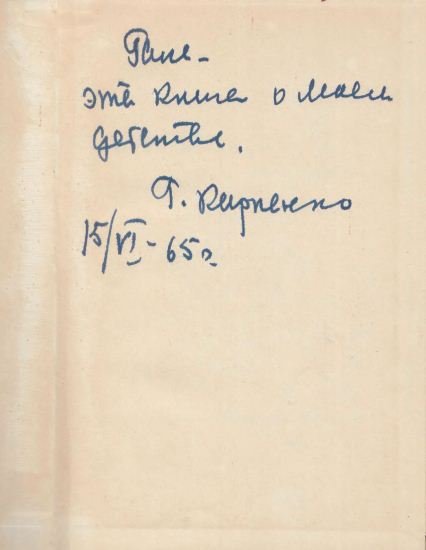 Гале -
эта книга о моем
детстве.
Г. Карпенко
15/VI - 65 г.